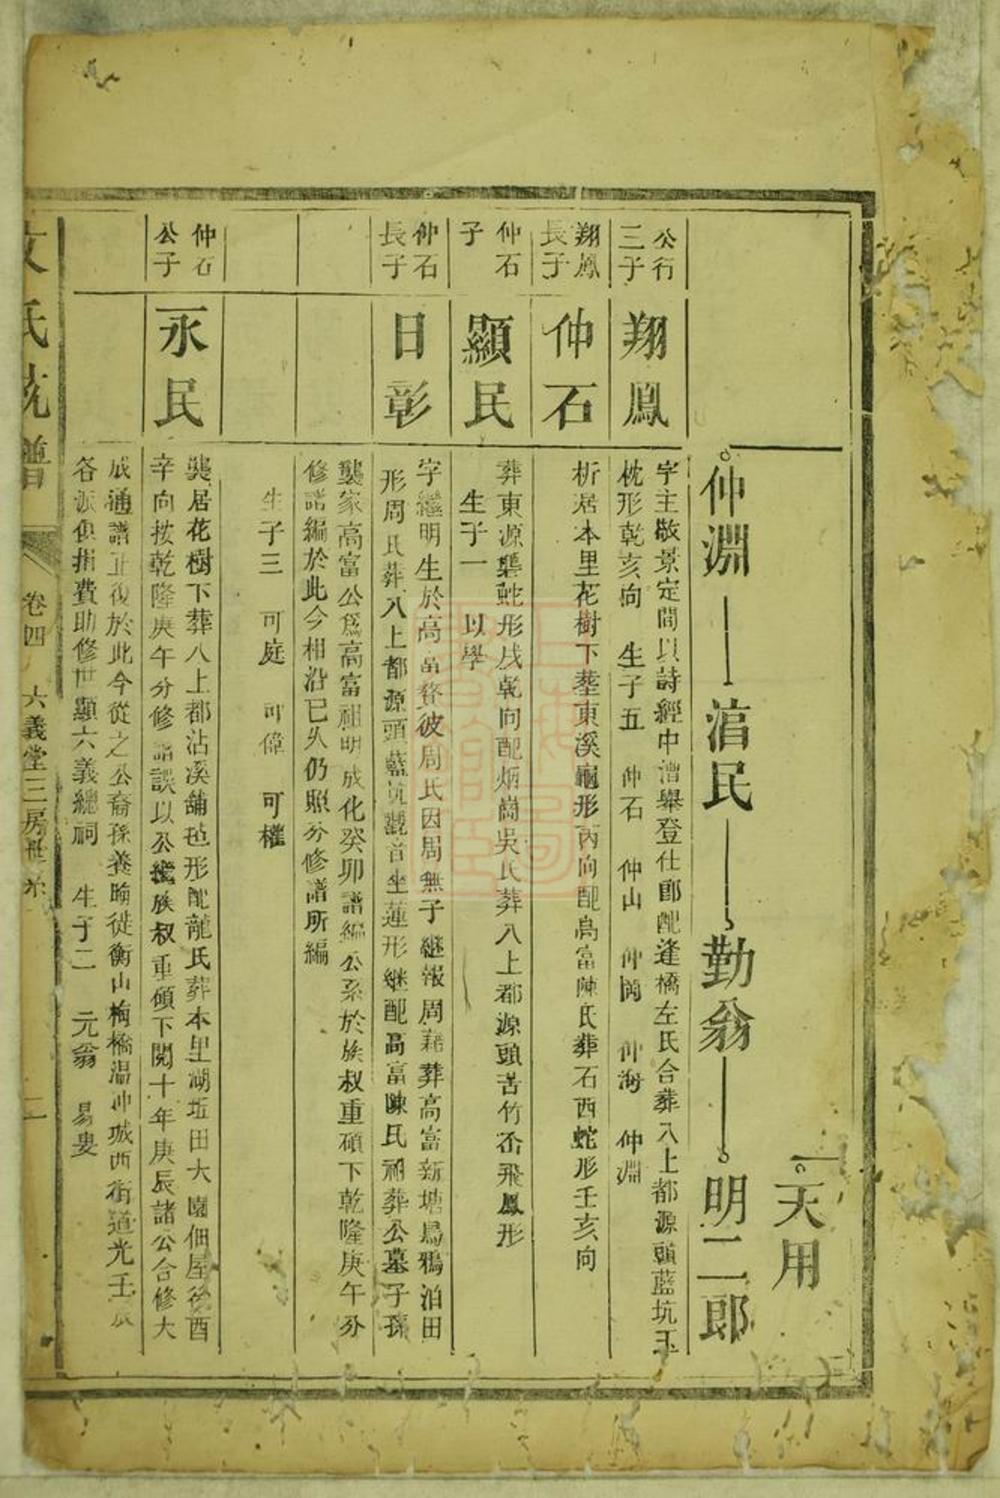 天用
仲淵 涫民 勤翁 明二郎
公行三子
翔鳳
字主敬景定間以詩經中漕舉登仕郎配逢橋左氏合葬八上都源頭藍坑玉
枕形乾亥向 生子五 仲石 仲山 仲岡 仲海 仲淵
翔鳳長子
仲石
析居本里花樹下塟東溪龜形丙向配高富陳氏葬石西蛇形壬亥向
仲石子
顯民
葬東源龔蛇形戌乾向配炳崗吳氏葬八上都源頭苦竹峦飛鳳形
生子一 以學
仲石長子
日彰
字繼明生於高富贅彼周氏因周無子繼報周耤葬高富新塘烏鴉泊田
形周氏葬八上都源頭藍坑觀音坐蓮形継配高富陳氏祔葬公墓子孫
襲家高富公爲高富祖明成化癸卯譜編公系於族叔重碩下乾隆庚午分
修譜編於此今相沿已久仍照分修譜所編
生子三 可庭 可偉 可權
仲石公子
永民
龔居花樹下葬八上都沾溪舖毡形配龍氏葬本里湖坵田大園佃屋後酉
辛向按乾隆庚午分修譜誤以公繼族叔重碩下閱十年庚辰諸公合修大
成通譜正復於此今從之公裔孫義晦從衡山梅橋温冲城西街道光壬辰
各派俱捐費助修世顯六義總祠 生子二 元翁 易叟
文氏䖏譜 卷四 六義堂三房世系 二